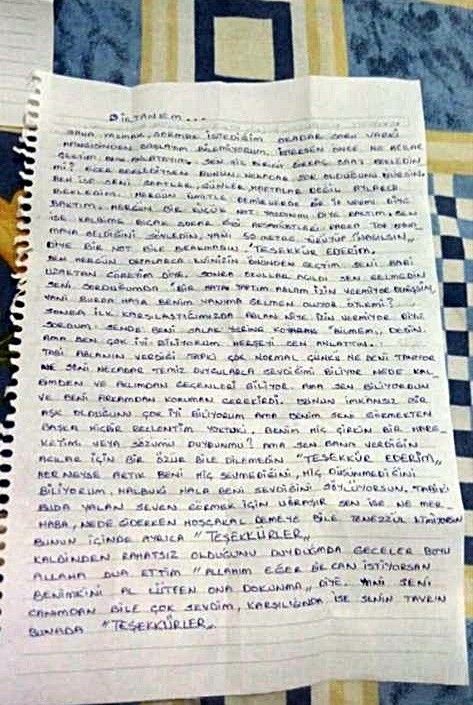 BİRTANEM...
SANA YAZMAK, SORMAK İSTEDİĞİM OKADAR SORU VARKİ
HANGİSİNDEN BAŞLAYIM BİLEMİYORUM. İSTERSEN ÖNCE NE ACILAR
ÇEKTİM ONU ANLATAYIM. SEN HİÇ BİRİNİ BİRKAÇ SAAT BEKLEDİN
Mİ? EĞER BEKLEDİYSEN BUNUN NEKADAR ZOR OLDUĞUNU BİLİRSİN.
BEN İSE SENİ SAATLER, GÜNLER, HAFTALAR DEĞİL AYLARCA
BEKLEDİM. HERGÜN ÜMİTLE DEMİRLERDE BİR İZ VARMI DİYE
BAKTIM. HERGÜN BİR KÜÇÜK NOT YAZDINMI DİYE BAKTIM. SEN
İSE KALBİME BIÇAK SOKAR GİBİ
GELDİĞİNİ SÖYLEDİN. YANİ 50 METRE YÜRÜYÜP "NASILSIN"
DİYE BİR NOT BİLE BIRAKMADIN "TEŞEKKÜR EDERİM.
BEN HERGÜN DEFALARCA EVİNİZİN ÖNÜNDEN GEÇTİM. SENİ BARİ
UZAKTAN GÖREYİM DİYE. SONRA OKULLAR AÇILDI SEN GELMEDİN
SENİ SORDUĞUMDA "BİR HATA YAPTIM ABLAM İZİN VERMİYOR DEMİŞSİN,
YANİ BURDA HATA BENİM YANIMA GELMEN OLUYOR ÖYLEMİ?
SONRA İLK KARŞILAŞTIĞIMIZDA ABLAN NİYE İZİN VERMİYOR DİYE
SORDUM. SENDE BENİ SALAK YERİNE KOYARAK "BİLMEM,, DEDİN.
AMA BEN ÇOK İYİ BİLİYORUM HERŞEYİ SEN ANLATTIN.
TABİ ABLANIN VERDİĞİ TEPKİ ÇOK NORMAL ÇÜNKÜ NE BENİ TANIYOR
NE SENİ NEKADAR TEMİZ DUYGULARLA SEVDİĞİMİ BİLİYOR NEDE KAL-
BİMDEN VE AKLIMDAN GEÇENLERİ BİLİYOR. AMA SEN BİLİYORDUN
VE BENİ ARKAMDAN KORUMAN GEREKİRDİ. BUNUN İMKANSIZ BİR
AŞK OLDUĞUNU ÇOK İYİ BİLİYORUM AMA BENİM SENİ GÖRMEKTEN
BAŞKA HİÇBİR BEKLENTİM YOKTUKİ. BENİM HİÇ ÇİRKİN BİR HARE-
KETİMİ VEYA SÖZÜMÜ DUYDUNMU? AMA SEN BANA VERDİĞİN
ACILAR İÇİN BİR ÖZÜR BİLE DİLEMEDİN "TEŞEKKÜR EDERİM,,
HER NEYSE ARTIK BENİ HİÇ SEVMEDİĞİNİ, HİÇ DÜŞÜNMEDİĞİNİ
BİLİYORUM, HALBUKİ HALA BENİ SEVDİĞİNİ SÖYLÜYORSUN. TABİKİ
BUDA YALAN SEVEN GÖRMEK İÇİN UĞRAŞIR SEN İSE NE MER-
HABA, NEDE GİDERKEN HOŞÇAKAL DEMEYE BİLE TENEZZÜL ETMİYORSUN
BUNUN İÇİNDE AYRICA "TEŞEKKÜRLER,,
KALBİNDEN RAHATSIZ OLDUĞUNU DUYDUĞUMDA GECELER BOYU
ALLAHA DUA ETTİM "ALLAHIM EĞER BİR CAN İSTİYORSAN
BENİMKİNİ AL LÜTFEN ONA DOKUNMA,, DİYE. YANİ SENİ
CANIMDAN BİLE ÇOK SEVDİM, KARŞILIĞINDA İSE SENİN TAVRIN
BUNADA "TEŞEKKÜRLER,,